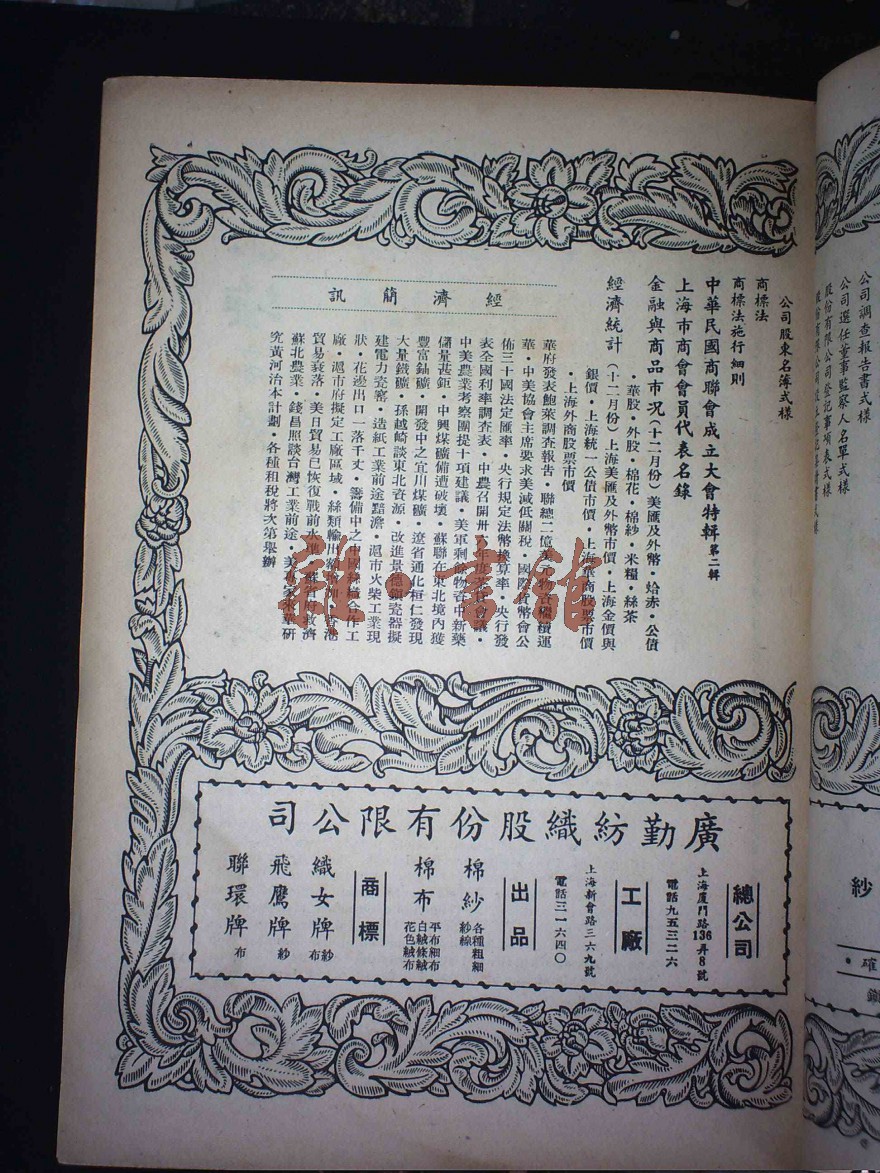 公司股東名簿式樣
商標法
商標法施行細則
中華民國商聯會成立大會特輯 第二輯
上海市商會會員代表名錄
金融與商品市況(十二月份)美匯及外幣・蛤赤・公債
・華股・外股・棉花・棉紗・米糧・絲茶
經濟統計(十二月份)上海美匯及外幣市價・上海金價與
銀價・上海統一公債市價・上海華商股票市價
・上海外商股票市價
經濟簡訊
華府發表鮑萊調查報告・聯總二億美元物資積運
華・中美協會主席要求美減低關稅・國際貨幣會公
佈三十國法定匯率・央行規定法幣換算率・央行發
表全國利率調查表・中農召開卅六年度會議・
中美農業考察團提十項建議・美軍剩餘物資中新藥
儲量甚鉅・中興煤礦備遭破壞・蘇聯在東北境內獲
豐富鈾礦・開發中之宜川煤礦・遼省通化桓仁發現
大量鐵礦・孫越崎談東北資源・改進景德鎮瓷器擬
建電力瓷窰・造紙工業前途黯澹・滬市火柴工業現
狀・花邊出口一落千丈・籌備中之中國合作工
廠・滬市府擬定工廠區域・絲類輸出・香港
貿易衰落・美日貿易已恢復戰前水準・蘇省府救濟
蘇北農業・錢昌照談台灣工業前途・美專家來華研
究黃河治本計劃・各種租稅將次第舉辦
廣勤紡織股份有限公司
總公司
上海廈門路136弄8號
電話九五三二六
工廠
上海新會路三六九號
電話三一六四〇
出品
棉紗 各種粗細紗線
棉布 平布細布白絨條絨花色絨布
商標
織女牌 紗布
飛鷹牌 紗
聯環牌 布
公司調查報告書式樣
公司選任董事監察人名單式樣
股份有限公司登記事項表式樣
紗
確・
雜・書館